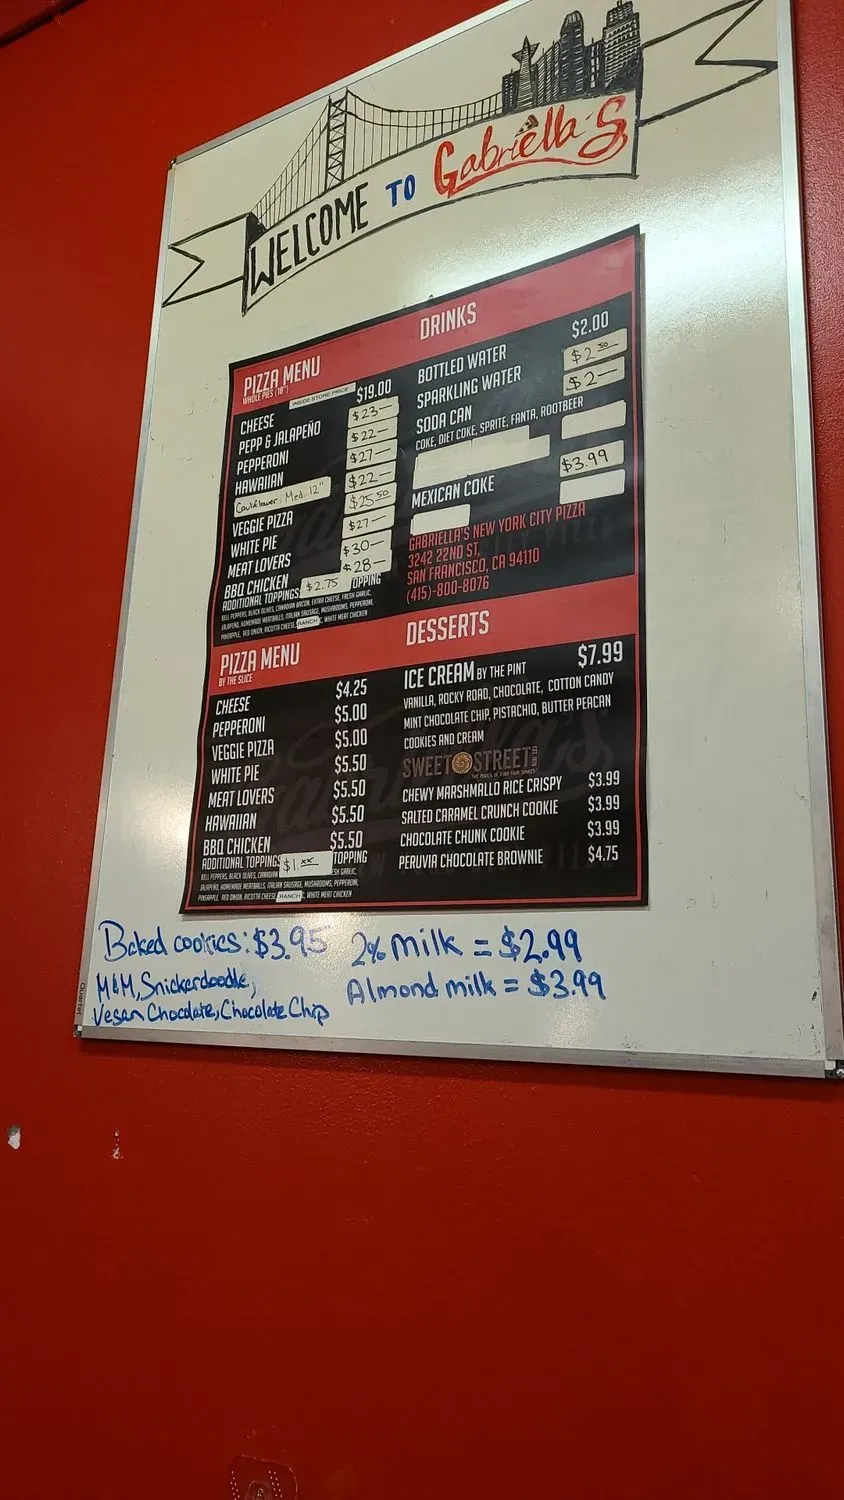 WELCOME TO Gabriella's
PIZZA MENU
WHOLE PIES (18")
INSIDE STORE PRICE
CHEESE $19.00
PEPP & JALAPEÑO $23—
PEPPERONI $22—
HAWAIIAN $27—
Cauliflower Med. 12" $22—
VEGGIE PIZZA $25.50
WHITE PIE $27—
MEAT LOVERS $30—
BBQ CHICKEN $28—
ADDITIONAL TOPPINGS $2.75 TOPPING
BELL PEPPERS, BLACK OLIVES, CANADIAN BACON, EXTRA CHEESE, FRESH GARLIC,
JALAPEÑO, HOMEMADE MEATBALLS, ITALIAN SAUSAGE, MUSHROOMS, PEPPERONI,
PINEAPPLE, RED ONION, RICOTTA CHEESE, RANCH, WHITE MEAT CHICKEN
DRINKS
BOTTLED WATER $2.00
SPARKLING WATER $2.50
SODA CAN $2—
COKE, DIET COKE, SPRITE, FANTA, ROOTBEER
MEXICAN COKE $3.99
GABRIELLA'S NEW YORK CITY PIZZA
3242 22ND ST,
SAN FRANCISCO, CA 94110
(415)-800-8076
PIZZA MENU
BY THE SLICE
CHEESE $4.25
PEPPERONI $5.00
VEGGIE PIZZA $5.00
WHITE PIE $5.50
MEAT LOVERS $5.50
HAWAIIAN $5.50
BBQ CHICKEN $5.50
ADDITIONAL TOPPINGS $1.xx TOPPING
BELL PEPPERS, BLACK OLIVES, CANADIAN ESH GARLIC,
JALAPEÑO, HOMEMADE MEATBALLS, ITALIAN SAUSAGE, MUSHROOMS, PEPPERONI,
PINEAPPLE, RED ONION, RICOTTA CHEESE RANCH, WHITE MEAT CHICKEN
DESSERTS
ICE CREAM BY THE PINT $7.99
VANILLA, ROCKY ROAD, CHOCOLATE, COTTON CANDY
MINT CHOCOLATE CHIP, PISTACHIO, BUTTER PEACAN
COOKIES AND CREAM
SWEET STREET
CHEWY MARSHMALLO RICE CRISPY $3.99
SALTED CARAMEL CRUNCH COOKIE $3.99
CHOCOLATE CHUNK COOKIE $3.99
PERUVIA CHOCOLATE BROWNIE $4.75
Baked cookies: $3.95
M&M, Snickerdoodle,
Vegan Chocolate, Chocolate Chip
2% milk = $2.99
Almond milk = $3.99
Quartet